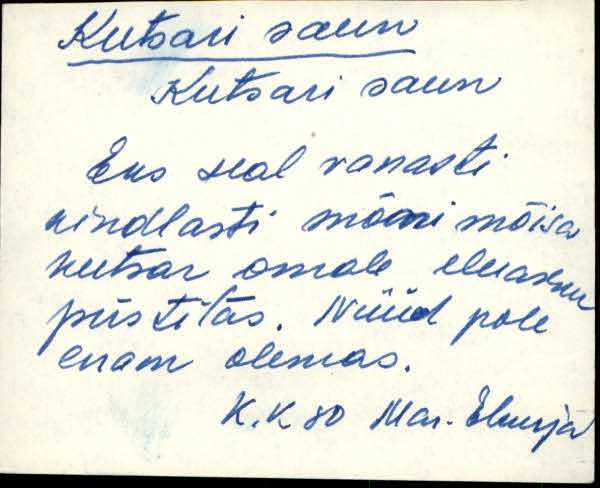 Kutsari saun
Kutsari saun
Eks seal vanasti
kindlasti mõni mõisa
kutsar omale eluaseme
püstitas. Nüüd pole
enam olemas.
K.K 80 Mar.